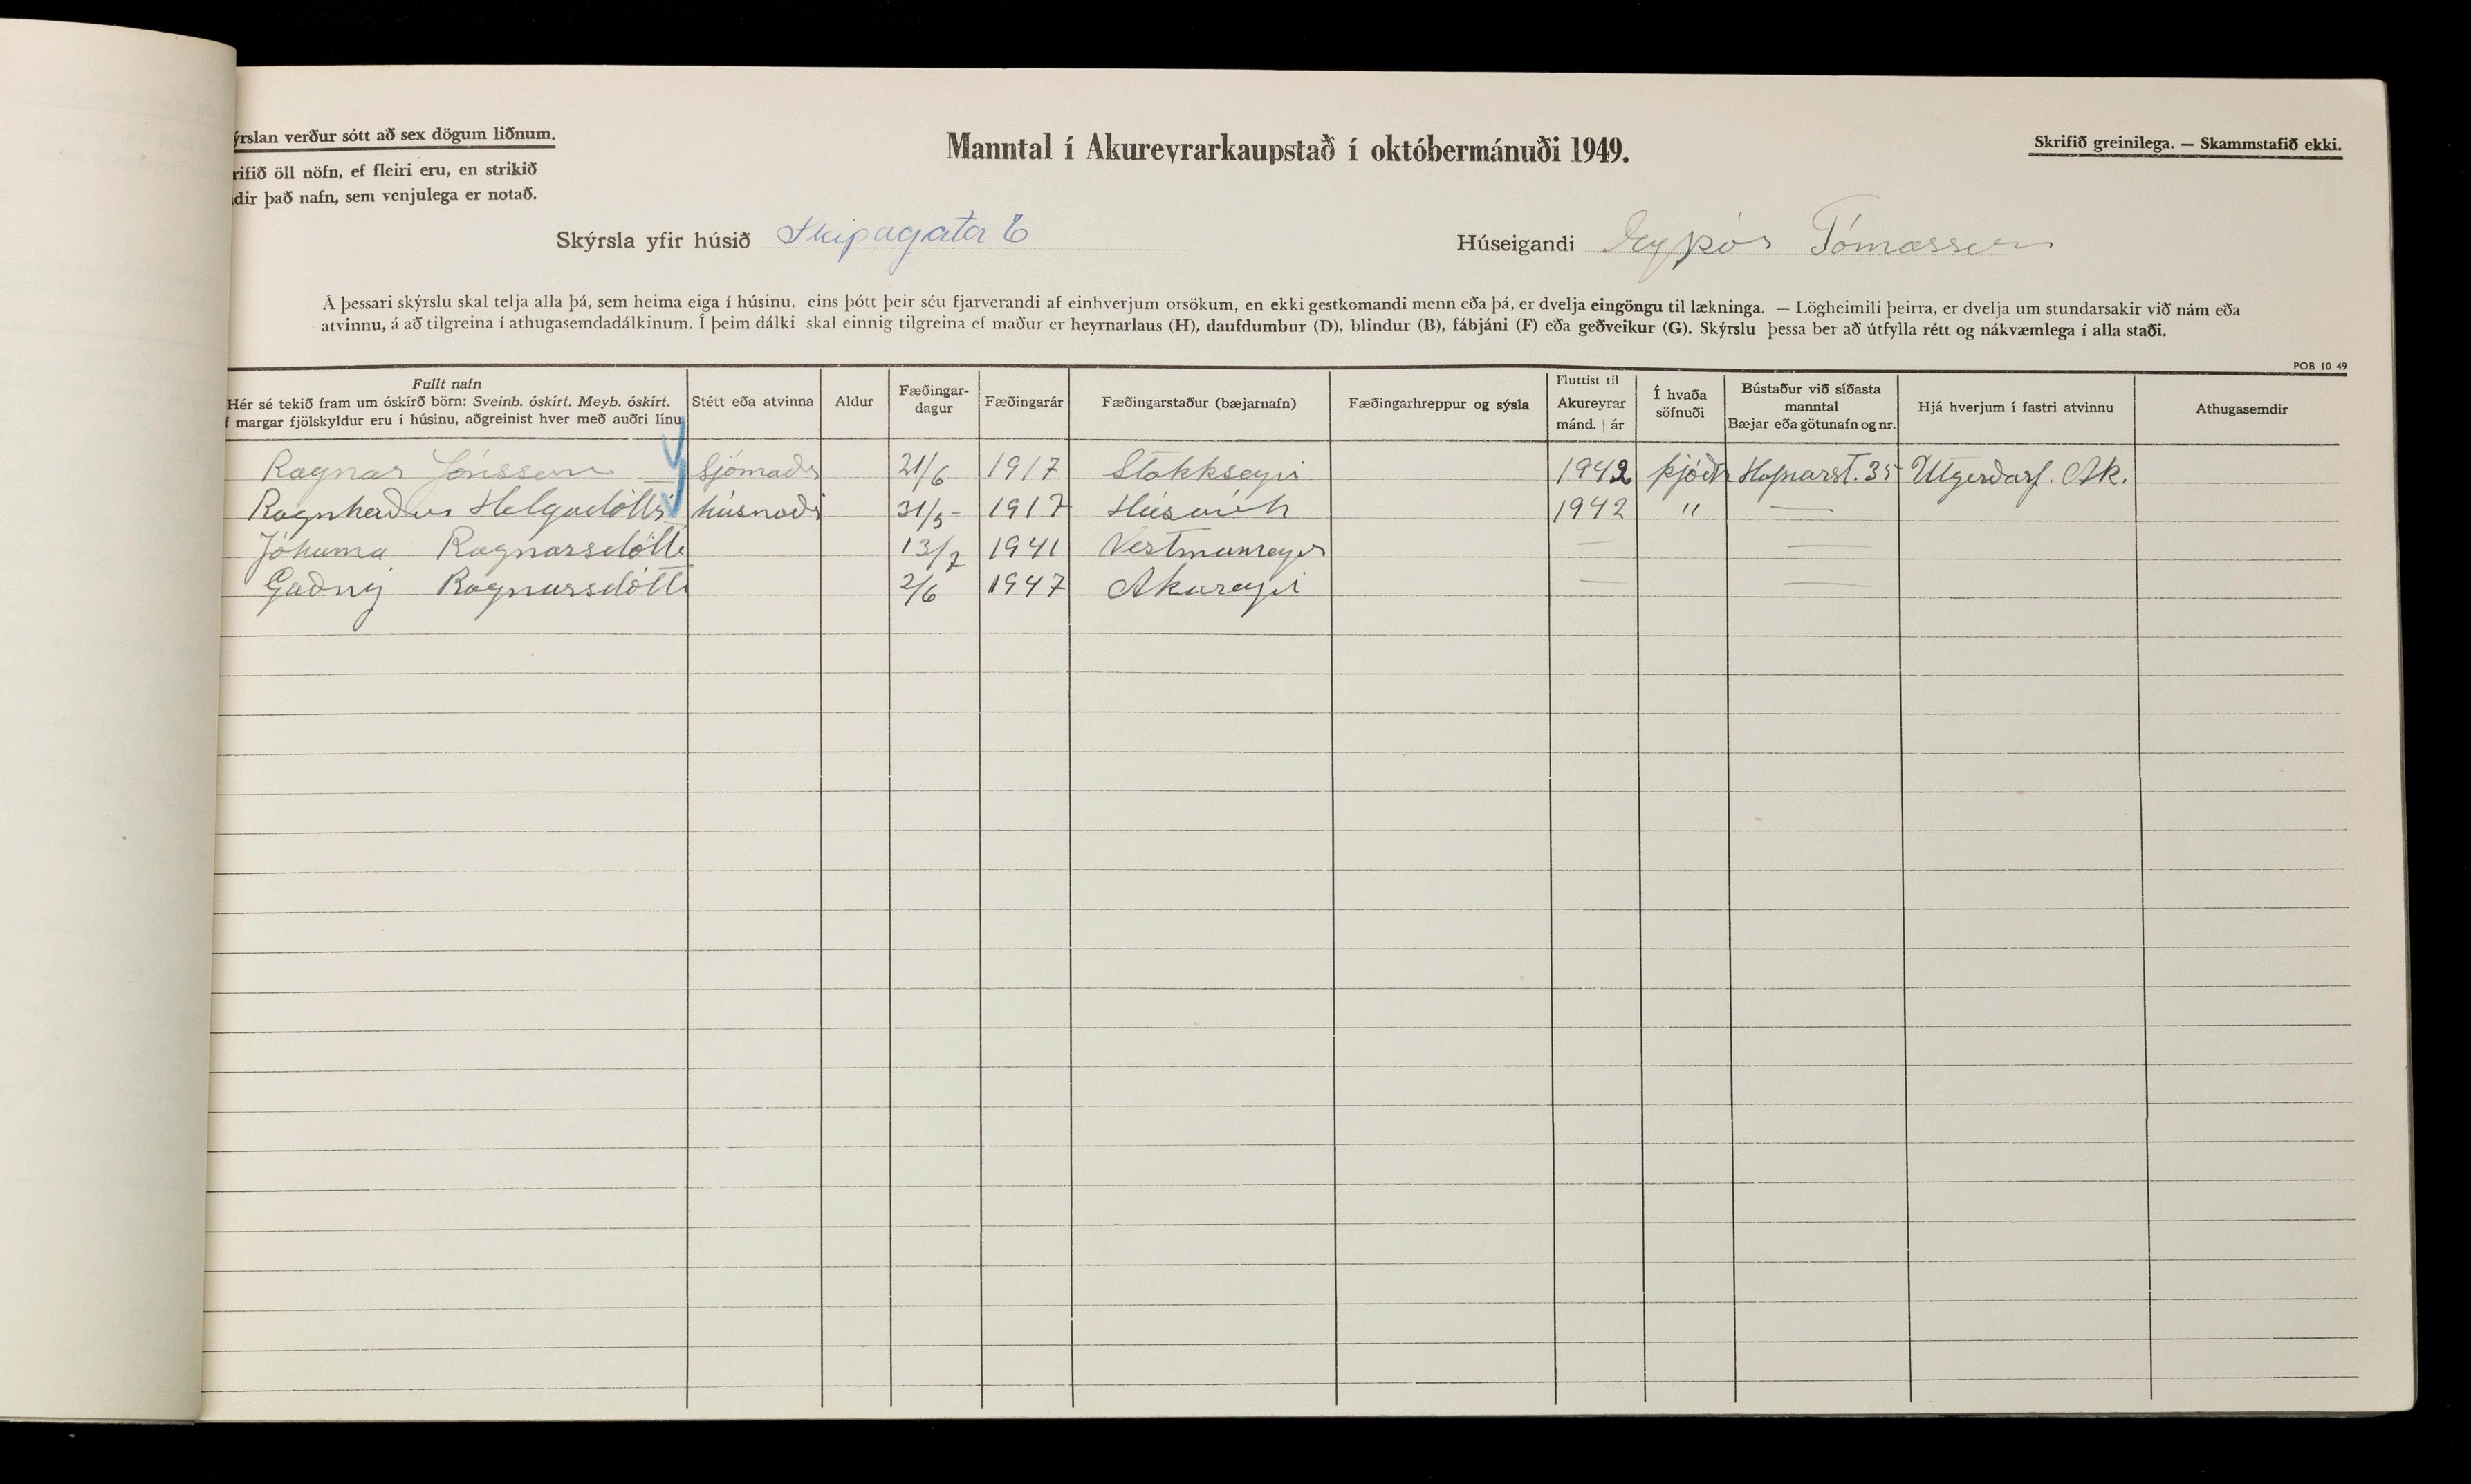 ýrslan verður sótt að sex dögum liðnum.
rifið öll nöfn, ef fleiri eru, en strikið
dir það nafn, sem venjulega er notað.
Manntal í Akureyrarkaupstað í októbermánuði 1949.
Skrifið greinilega. — Skammstafið ekki.
Skýrsla yfir húsið Skipagata 6
Húseigandi Eyþór Tómasson
Á þessari skýrslu skal telja alla þá, sem heima eiga í húsinu, eins þótt þeir séu fjarverandi af einhverjum orsökum, en ekki gestkomandi menn eða þá, er dvelja eingöngu til lækninga. — Lögheimili þeirra, er dvelja um stundarsakir við nám eða
atvinnu, á að tilgreina í athugasemdadálkinum. Í þeim dálki skal einnig tilgreina ef maður er heyrnarlaus (H), daufdumbur (D), blindur (B), fábjáni (F) eða geðveikur (G). Skýrslu þessa ber að útfylla rétt og nákvæmlega í alla staði.
POB 10 49
Fullt nafn
Hér sé tekið fram um óskírð börn: Sveinb. óskírt. Meyb. óskírt.
f margar fjölskyldur eru í húsinu, aðgreinist hver með auðri línu.
Stétt eða atvinna
Aldur
Fæðingar-
dagur
Fæðingarár
Fæðingarstaður (bæjarnafn)
Fæðingarhreppur og sýsla
Fluttist til
Akureyrar
mánd. | ár
Í hvaða
söfnuði
Bústaður við síðasta
manntal
Bæjar eða götunafn og nr.
Hjá hverjum í fastri atvinnu
Athugasemdir
Ragnar Jónsson sjómaðr 21/6 1917 Stokkseyri 1942 þjóðk Hafnarst. 35 Útgerðarf. Ak.
Ragnheiður Helgadóttir húsmóðir 31/5 1917 Húsavík 1942 " —
Jóhanna Ragnarsdótti 13/7 1941 Vestmaneyjr — —
Guðný Ragnarsdótti 2/6 1947 Akureyri — —